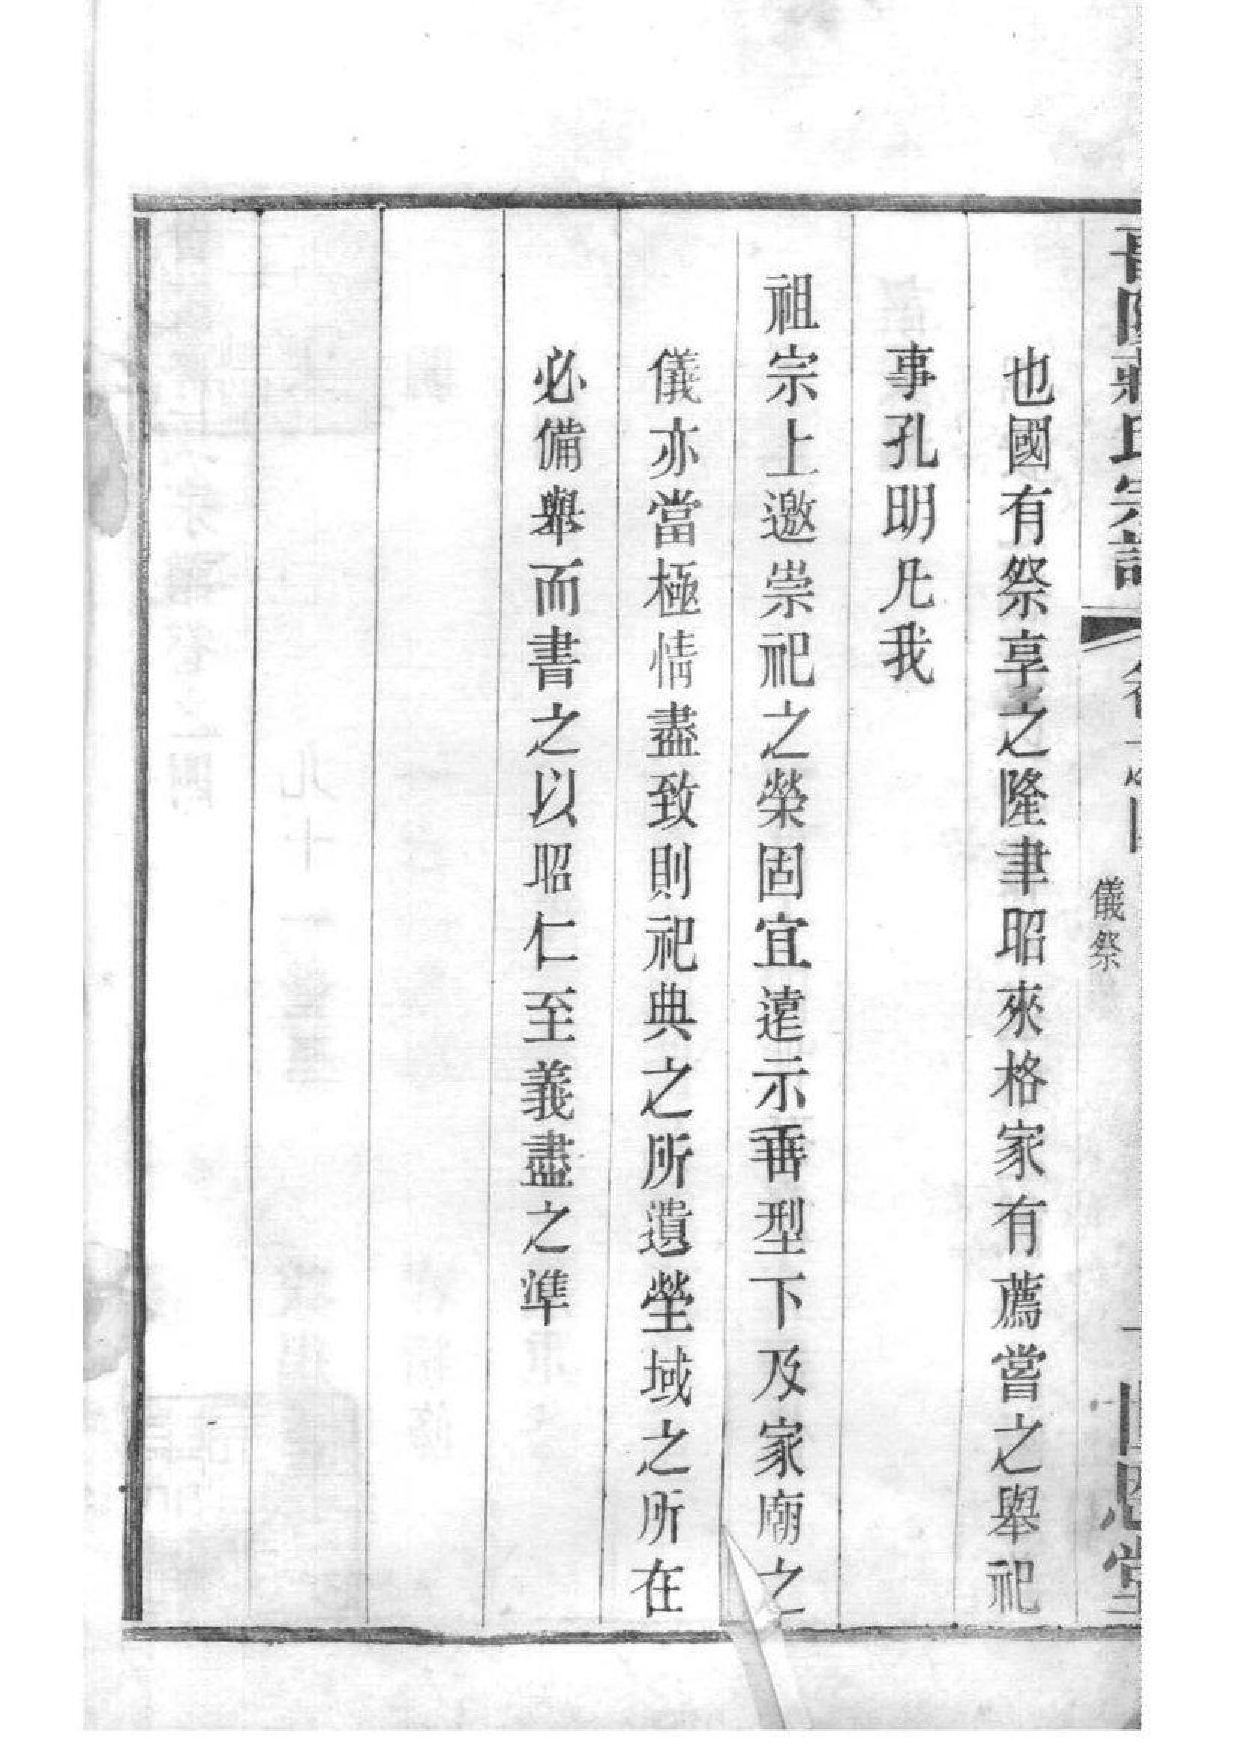 晉陵蔣氏宗譜
儀祭
世恩堂
也國有祭享之隆聿昭來格家有薦嘗之舉祀
事孔明凡我
祖宗上邀崇祀之榮固宜遠示垂型下及家廟之
儀亦當極情盡致則祀典之所遺塋域之所在
必備舉而書之以昭仁至義盡之準